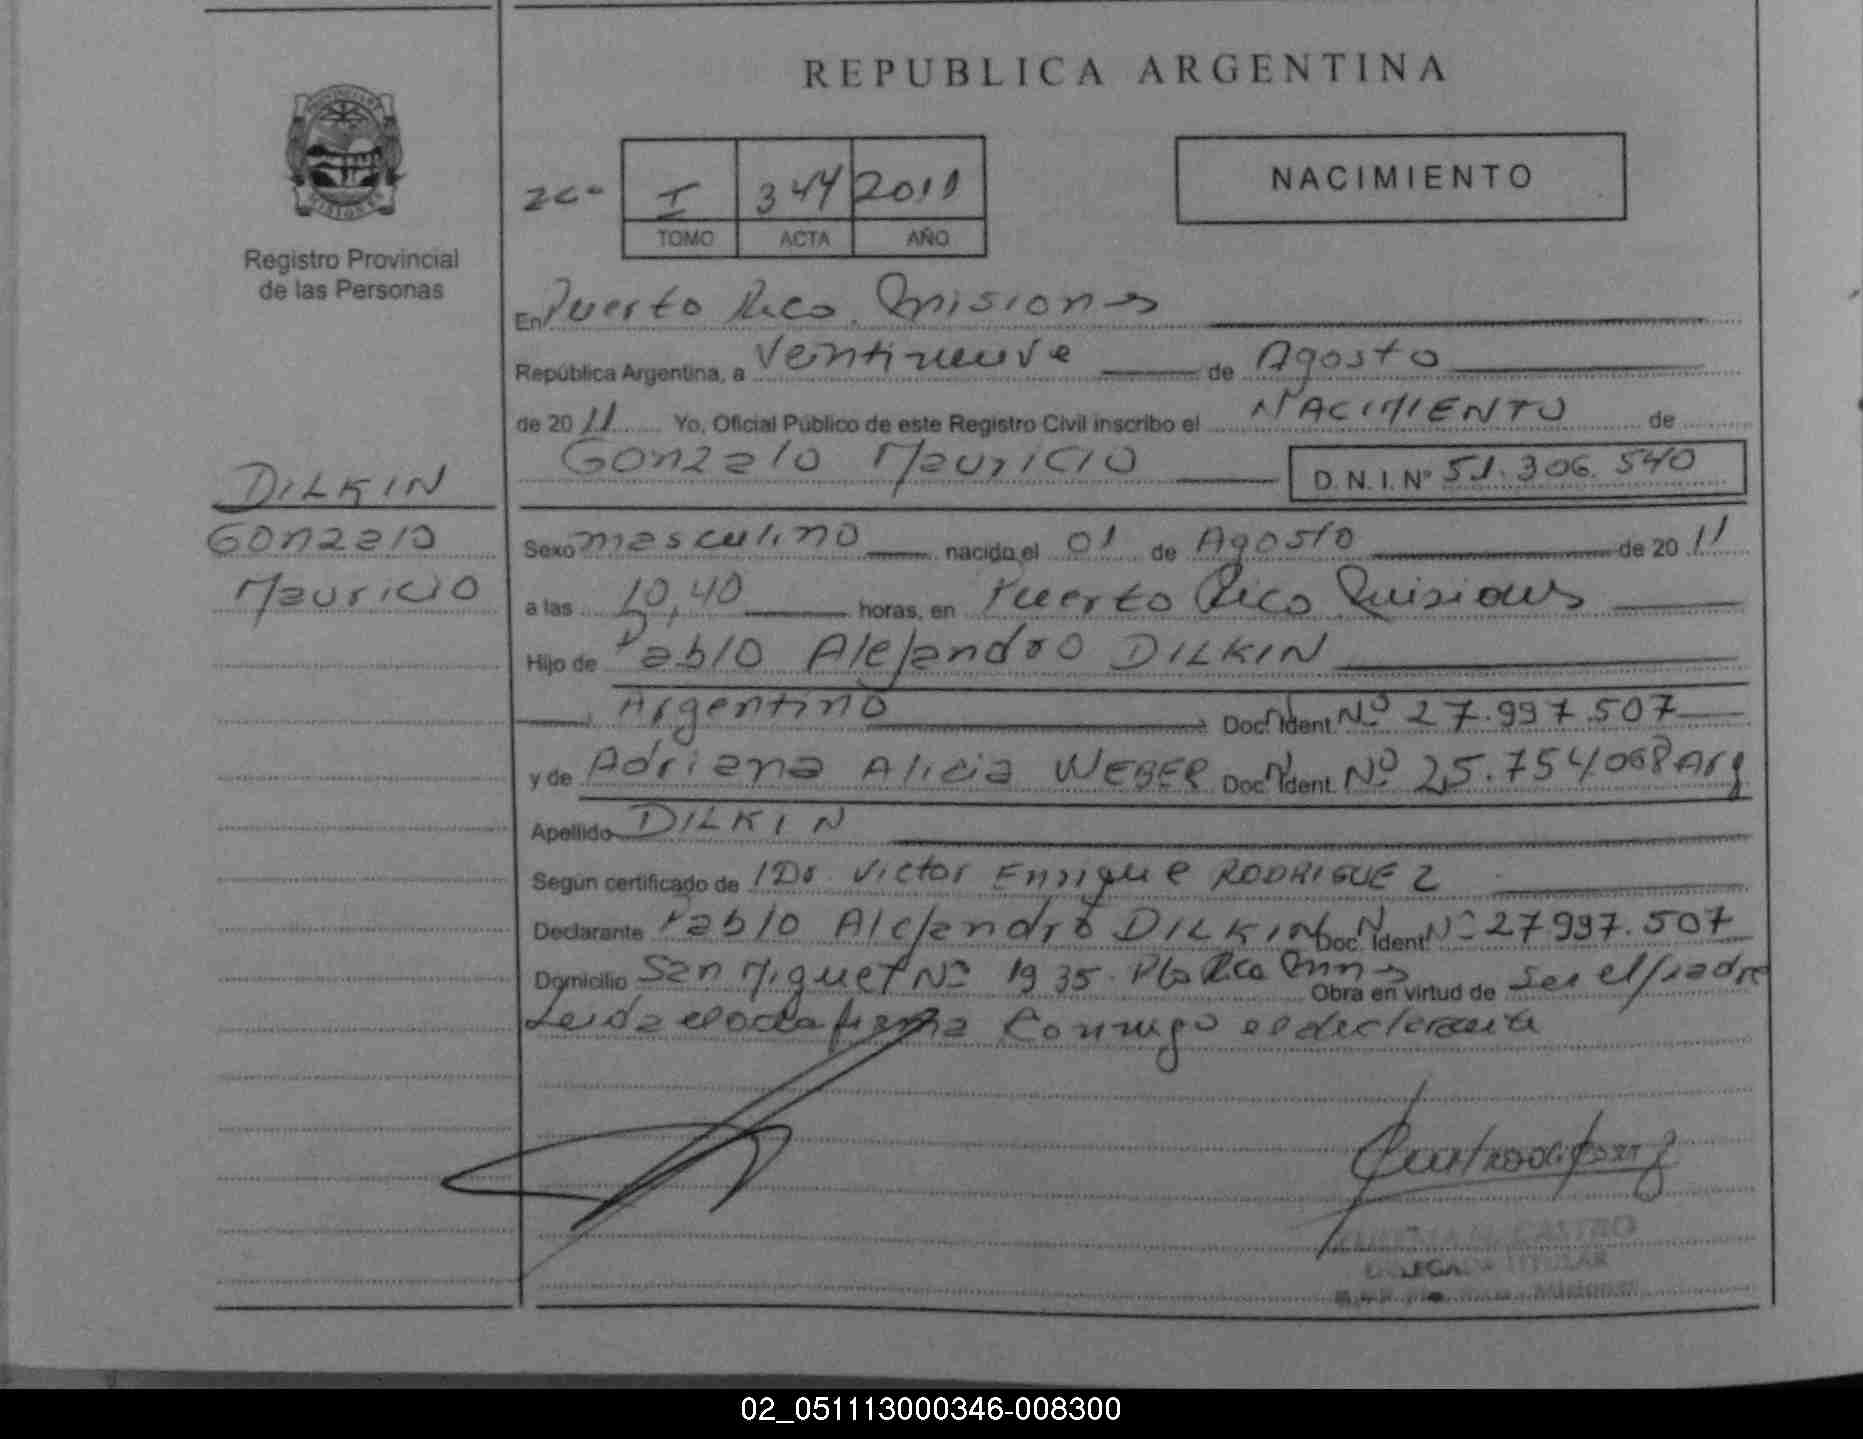 REPUBLICA ARGENTINA
PROVINCIA DE
MISIONES
Registro Provincial
de las Personas
I 344 2011
TOMO ACTA AÑO
NACIMIENTO
En Puerto Rico. Misiones
República Argentina, a Ventinueve de Agosto
de 20 11 Yo, Oficial Público de este Registro Civil inscribo el NACIMIENTO de
Gonzalo Mauricio D. N. I. Nº 51.306.540
DILKIN
Gonzalo
Mauricio
Sexo masculino nacido el 01 de Agosto de 20 11
a las 10,40 horas, en Puerto Rico Misiones
Hijo de Pablo Alejandro DILKIN
Argentino Doc. Ident. Nº 27.997.507
y de Adriana Alicia WEBER Doc. Ident. Nº 25.754068 Arg
Apellido DILKIN
Según certificado de Dr. Victor Enrique RODRIGUEZ
Declarante Pablo Alejandro DILKIN Doc. Ident. Nº 27997.507
Domicilio San Miguel Nº 1935. Pto Rico Mns Obra en virtud de Ser el padre
Leida el acta firma Conmigo el declarante
CASTRO
DELEGADA TITULAR
Misiones
02_051113000346-008300